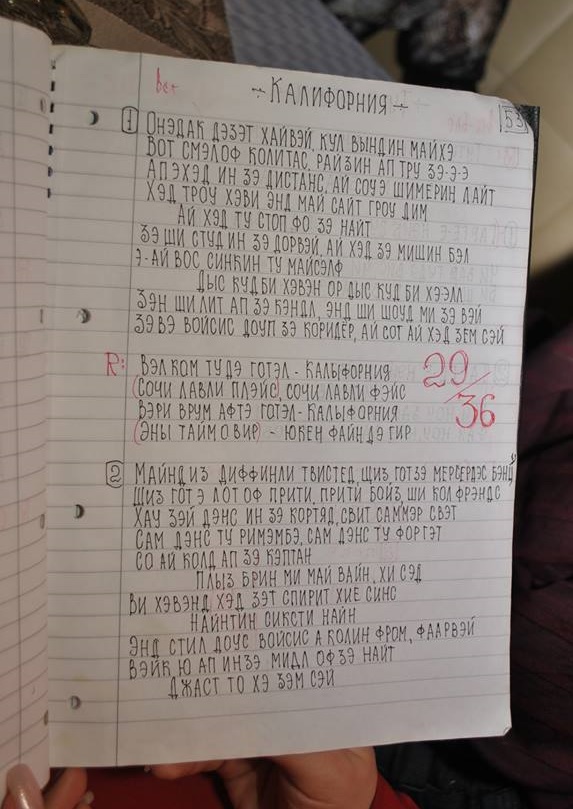 ÷ Калифорния ÷
53
1 Онэдак дэзэт хайвэй, кул вындин майхэ
Вот смэлоф колитас, райзин ап тру зэ-э-э
Ап эхэд ин зэ дистанс, ай соуэ шимерин лайт
Хэд троу хэви энд май сайт гроу дим
Ай хэд ту стоп фо зэ найт
Зэ ши студ ин зэ дорвэй, ай хэд зэ мишин бэл
Э-ай вос синкин ту майсэлф
Дыс куд би хэвэн ор дыс куд би хээлл
Зэн ши лит ап зэ кэндл, энд ши шоуд ми зэ вэй
Зэ вэ войсис доуп зэ коридёр, ай сот ай хэд зем сэй
R: Вэлком ту дэ готэл - Калыфорния
(Сочи лавли плэйс, сочи лавли фэйс
Вэри врум афтэ готэл - Калыфорния
(Эны тайм о вир) - юкен файн дэ гир
29/36
2 Майнд из диффинли твистед, щиз готзэ мерсердэс бэнц
Щиз гот э лот оф прити, прити бойз, ши кол фрэндс
Хау зэй дэнс ин зэ кортяд, свит саммэр свэт
Сам дэнс ту римэмбэ, сам дэнс ту форгэт
Со ай колд ап зэ кэптан
Плыз брин ми май вайн, хи сэд
Ви хэвэнд хэд зэт спирит хие синс
Найнтин сиксти найн
Энд стил доус войсис а колин фром, фаарвэй
Вэйк ю ап ин зэ мидл оф зэ найт
Джаст то хэ зэм сэй